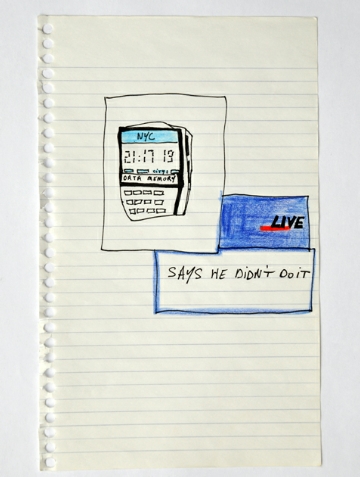 NYC
21:17 19
DATA MEMORY
LIVE
SAYS HE DIDN'T DO IT